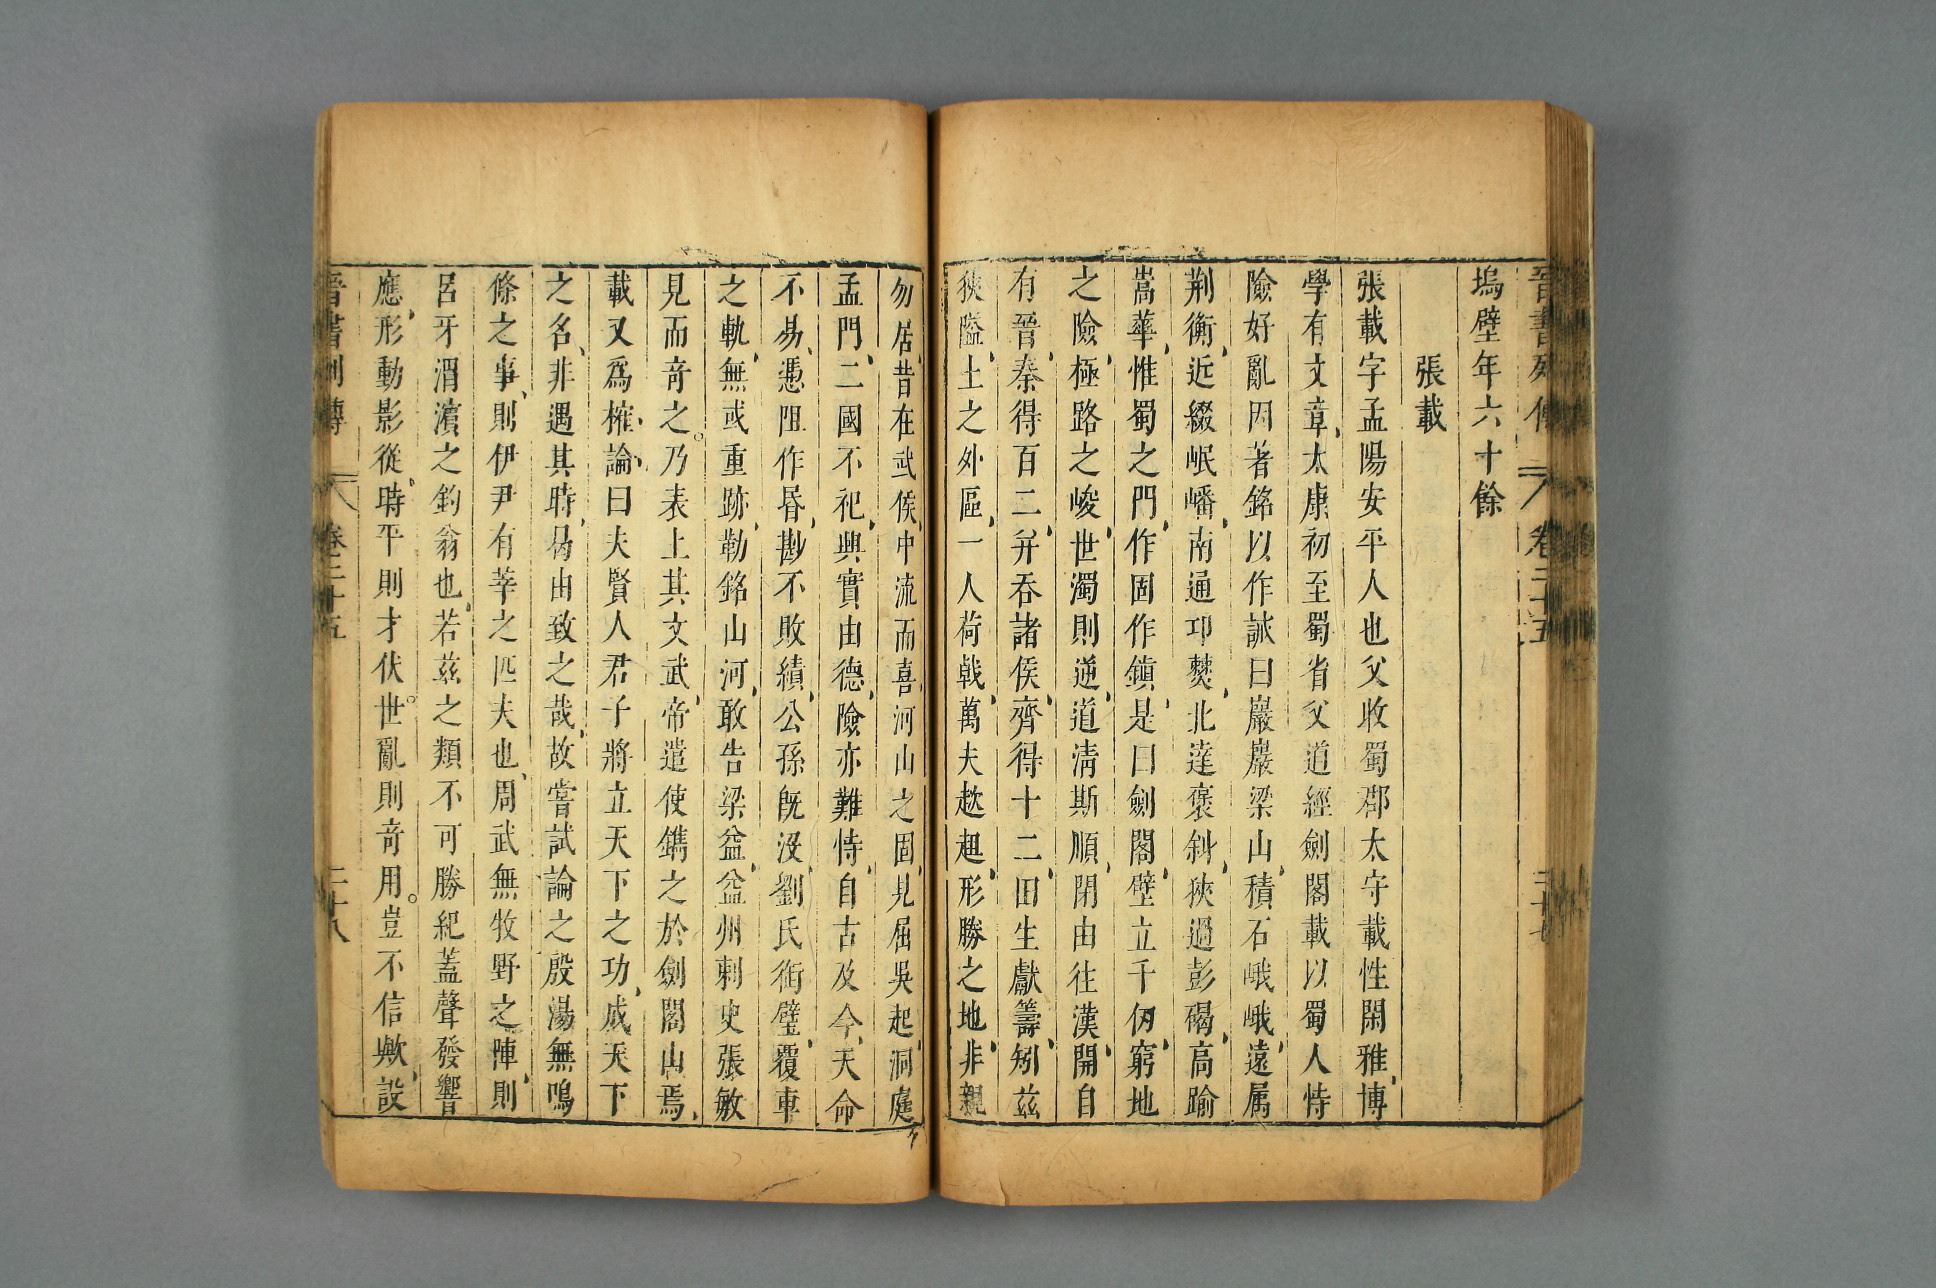 晉書列傳 卷三十五 二十七
塢壁年六十餘
張載
張載字孟陽安平人也父收蜀郡太守載性閑雅博
學有文章太康初至蜀省父道經劍閣載以蜀人恃
險好亂因著銘以作誡曰巖巖梁山積石峨峨遠屬
荆衡近綴岷嶓南通卭僰北達褒斜狹過彭碣高踰
嵩華惟蜀之門作固作鎮是曰劍閣壁立千仞窮地
之險極路之峻世濁則逆道清斯順閉由往漢開自
有晉秦得百二并吞諸侯齊得十二田生獻籌矧茲
狹隘土之外區一人荷戟萬夫趑趄形勝之地非親
勿居昔在武侯中流而喜河山之固見屈吳起洞庭
孟門二國不祀興實由德險亦難恃自古及今天命
不易憑阻作昬尠不敗績公孫旣沒劉氏銜璧覆車
之軌無或重跡勒銘山河敢告梁益益州刺史張敏
見而奇之乃表上其文武帝遣使鐫之於劍閣山焉
載又爲榷論曰夫賢人君子將立天下之功成天下
之名非遇其時曷由致之哉故嘗試論之殷湯無鳴
條之事則伊尹有莘之匹夫也周武無牧野之陣則
呂牙渭濵之釣翁也若茲之類不可勝紀蓋聲發響
應形動影從時平則才伏世亂則奇用豈不信歟設
晉書列傳 卷三十五 二十八